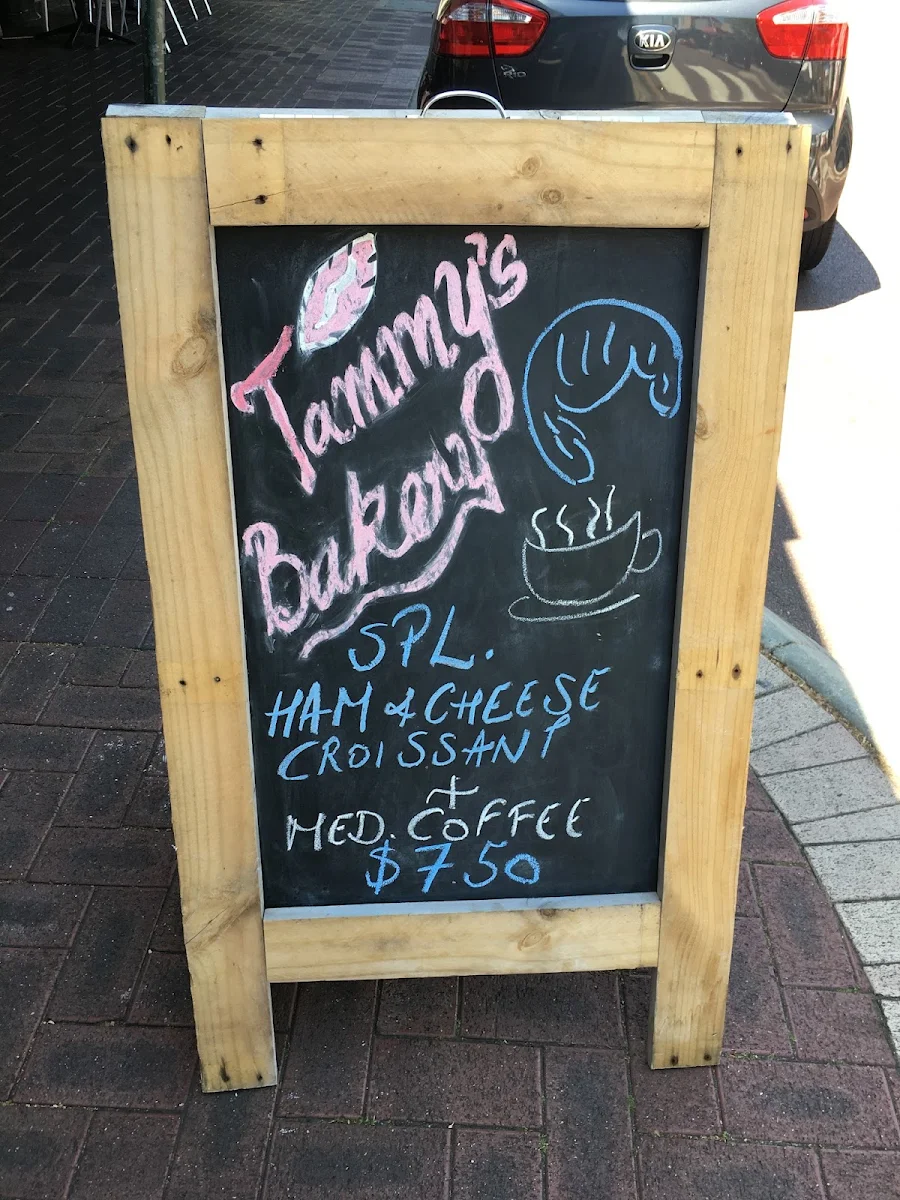 KIA
RIO
Tammy's
Bakery
SPL.
HAM & CHEESE
CROISSANT
+
MED. COFFEE
$7.50